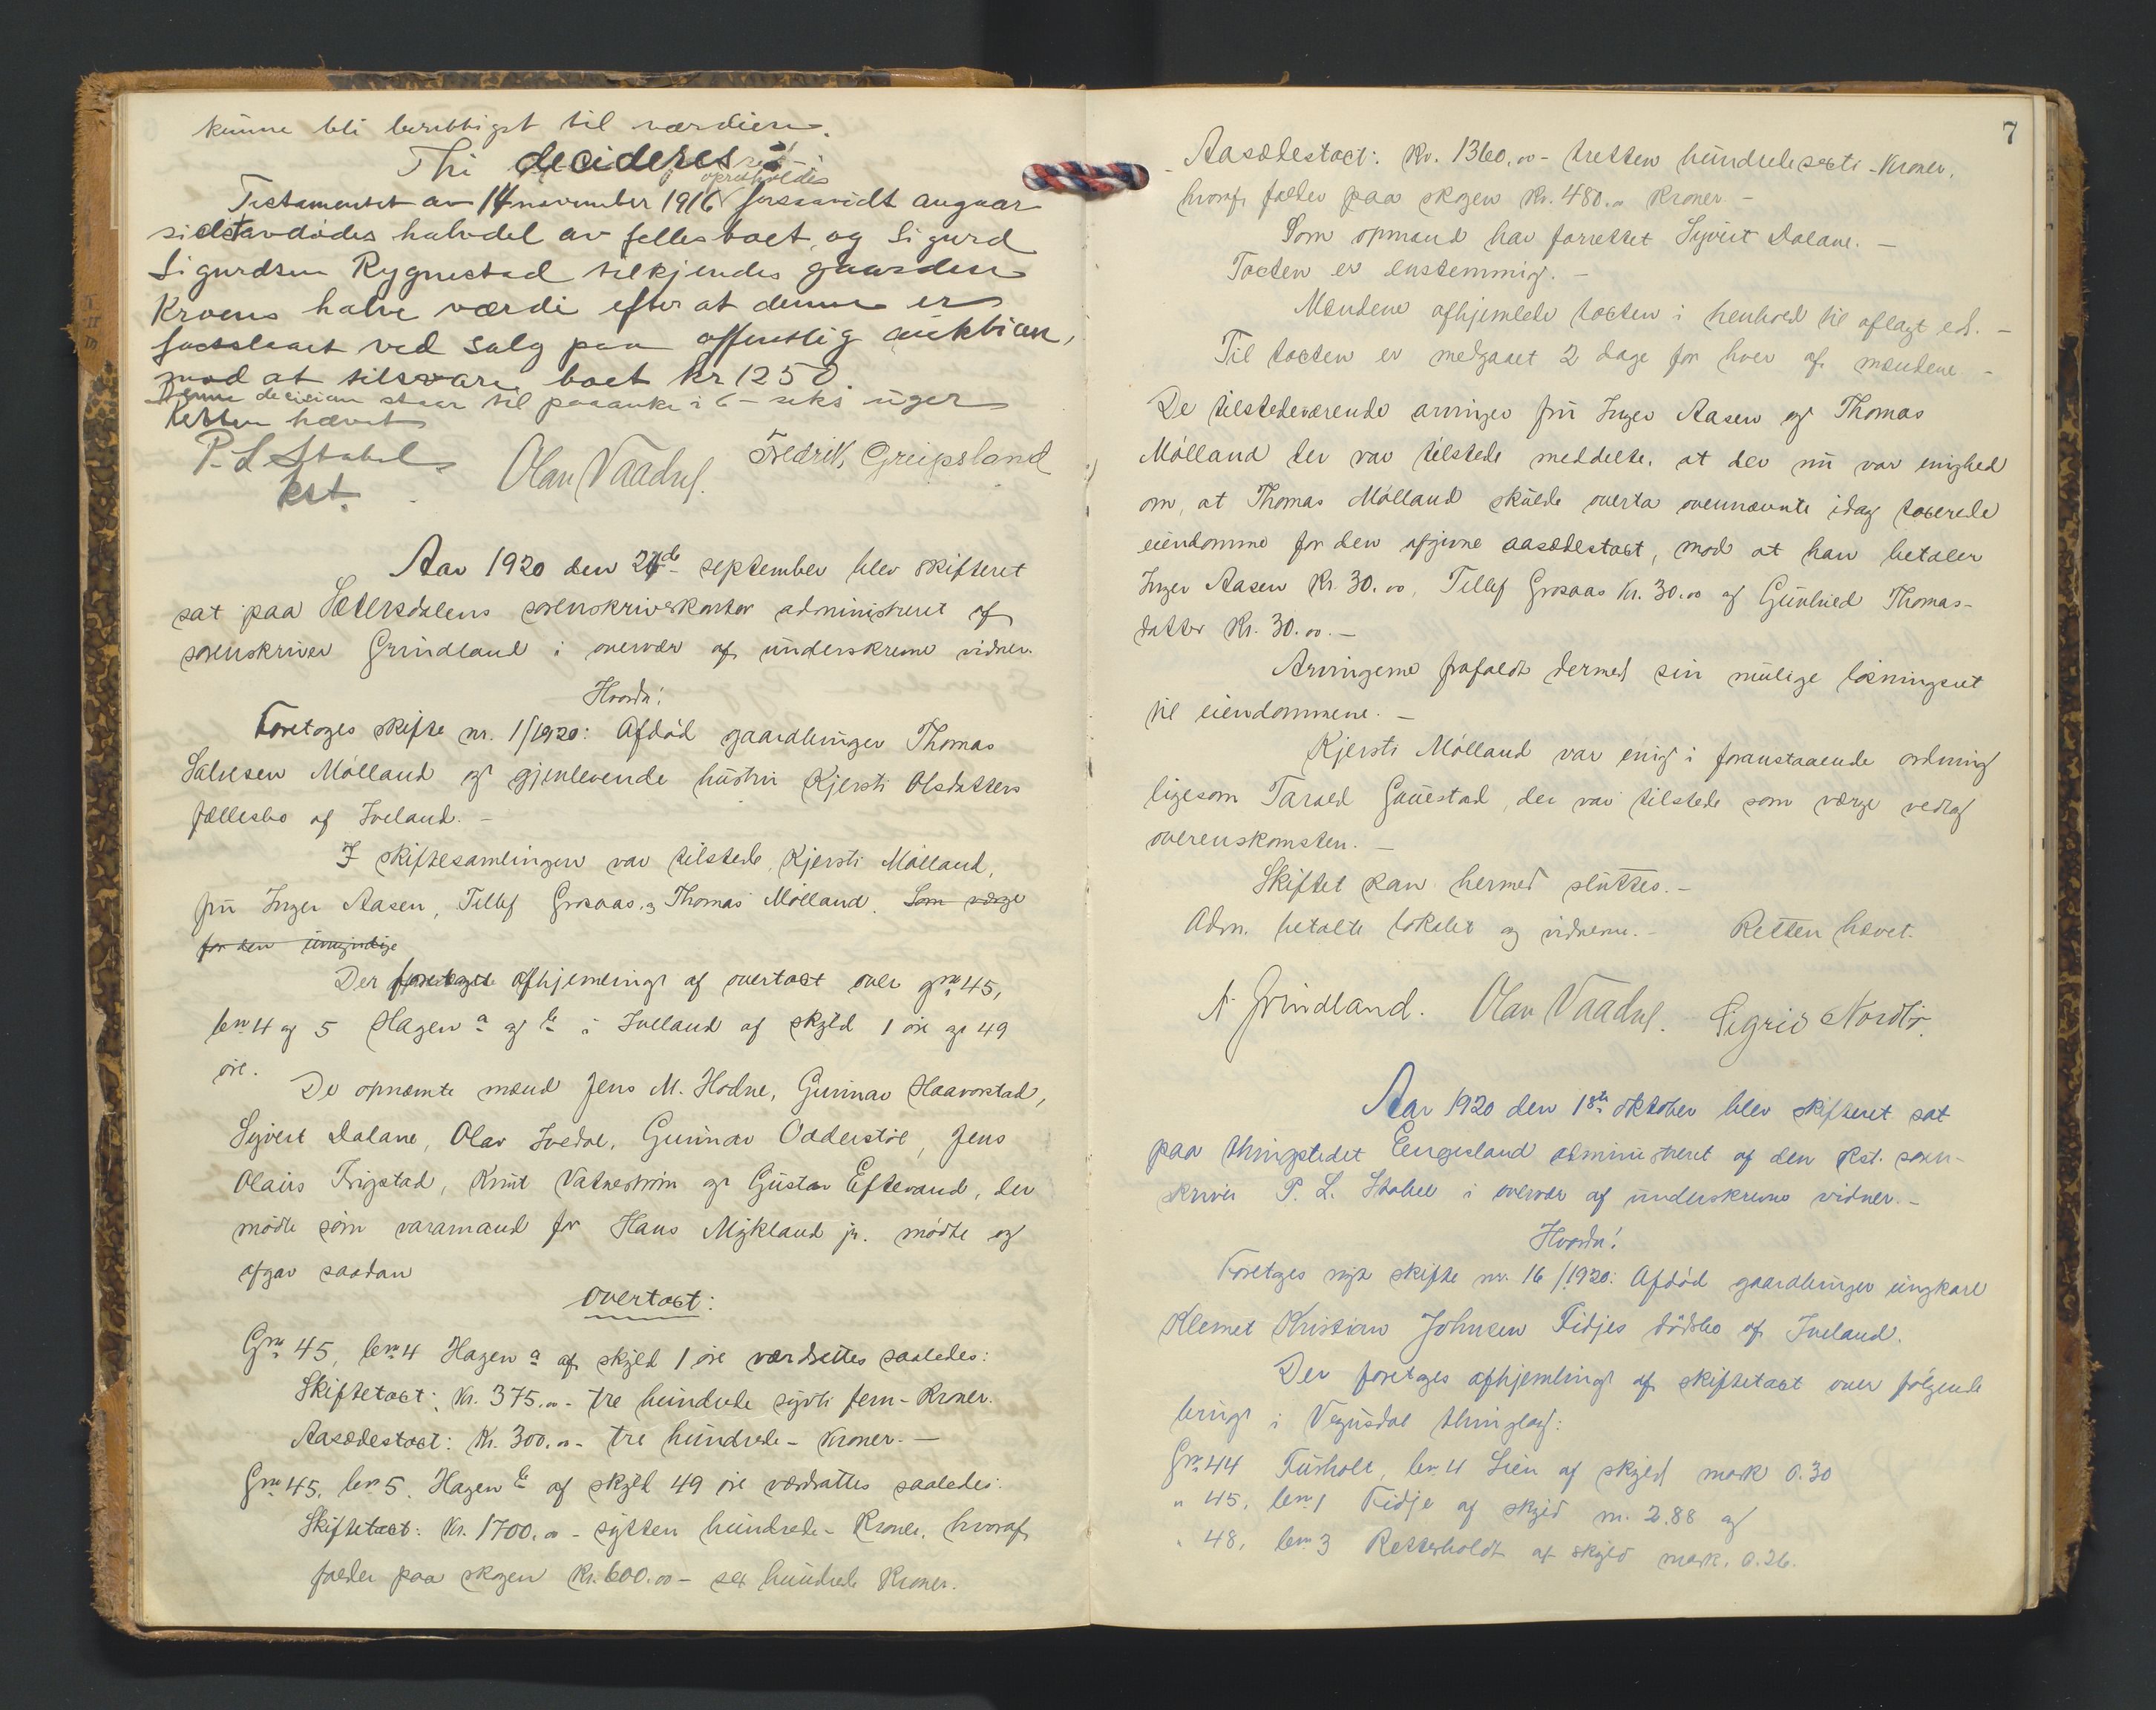 kunne bli berettiget til værdien.
Thi decideres:
opretholdes
Testamentet av 14 november 1916 forsaavidt angaar
sidstavdødes halvdel av fellesboet, og Sigurd
Sigurdsen Rygnestad tilkjendes gaarden
Kroens halve værdi efter at denne er
fastslaaet ved salg paa offentlig auktion,
mod at tilsvare boet kr 1250.
Denne decision staar til paaanke i 6 - seks uger
Retten hævet
P. L. Stabel Olav Vaadul. Fredrik Greipsland
kst.
Aar 1920 den 27de september blev skifteret
sat paa Sætersdalens sorenskriverkontor administreret af
sorenskriver Grindland i overvær af underskrevne vidner.
Hvorda!
Foretages skifte nr. 1/1920: Afdød gaardbruger Thomas
Salvesen Mölland og gjenlevende hustru Kjersti Olsdatters
fællesbo af Iveland. -
I skiftesamlingen var tilstede, Kjersti Mölland,
fru Inger Aasen, Tellef Grosaas og Thomas Mölland. Som værge
for den umyndige
Der foretages afhjemling af overtaxt over gnr 45,
bnr 4 og 5 Hagen a og b i Iveland af skyld 1 öre og 49
öre.
De opnævnte mænd Jens M. Hodne, Gunnar Haavorstad,
Syvert Dalane, Olav Ivedal, Gunnar Odderstöl, Jens
Olaus Frigstad, Knut Vatneström og Gustav Eftevand, der
mödte som varamand for Hans Mykland jr. mödte og
afgav saadan
overtaxt:
Gnr 45, bnr 4 Hagen a af skyld 1 öre værdsættes saaledes:
Skiftetaxt: Kr. 375.00 - tre hundrede sytti fem - Kroner.
Aasædestaxt: Kr. 300.00 - tre hundrede - Kroner. -
Gnr 45, bnr 5. Hagen b af skyld 49 öre værdsættes saaledes:
Skiftetaxt: Kr. 1700.00 - sytten hundrede - Kroner, hvoraf
falder paa skogen Kr. 600.00 - sex hundrede Kroner.
7
Aasædestaxt: Kr. 1360.00 - tretten hundrede sexti - Kroner,
hvoraf falder paa skogen Kr. 480.00 Kroner -
Som opmand har forrettet Syvert Dalane. -
Taxten er enstemmig. -
Mændene afhjemlede taxten i henhold til aflagt ed. -
Til taxten er medgaaet 2 dage for hver af mændene -
De tilstedeværende arvinger fru Inger Aasen og Thomas
Mölland der var tilstede meddelte, at der nu var enighed
om, at Thomas Mölland skulde overta ovennævnte idag taxerede
eiendomme for den afgivne aasædestaxt, mod at han betaler
Inger Aasen Kr. 30.00, Tellef Grosaas Kr. 30.00 og Gunhild Thomas-
datter Kr. 30.00. -
Arvingerne frafaldt dermed sin mulige lösningsret
til eiendommene. -
Kjersti Mölland var enig i foranstaaende ordning
ligesom Tarald Gauestad, der var tilstede som værge vedtog
overenskomsten. -
Skiftet kan hermed sluttes. -
Adm. betalte lokalet og vidnerne. - Retten hævet.
A. Grindland. Olav Vaadul. Sigrid Nordbö.
Aar 1920 den 18de oktober blev skifteret sat
paa thingstedet Engesland administreret af den kst. soren-
skriver P. L. Stabel i overvær af underskrevne vidner. -
Hvorda!
Foretages nyt skifte nr. 16/1920: Afdød gaardbruger ungkarl
Klemet Kristian Johnsen Fidjes dödsbo af Iveland.
Der foretages afhjemling af skiftetaxt over følgende
brug i Vegusdal thinglag:
Gnr 44 Furholt, bnr 4 Lien af skyld mark 0.30
" 45, bnr 1 Fidje af skyld m. 2.88 og
" 48, bnr 3 Retterholdt af skyld mark. 0.26.